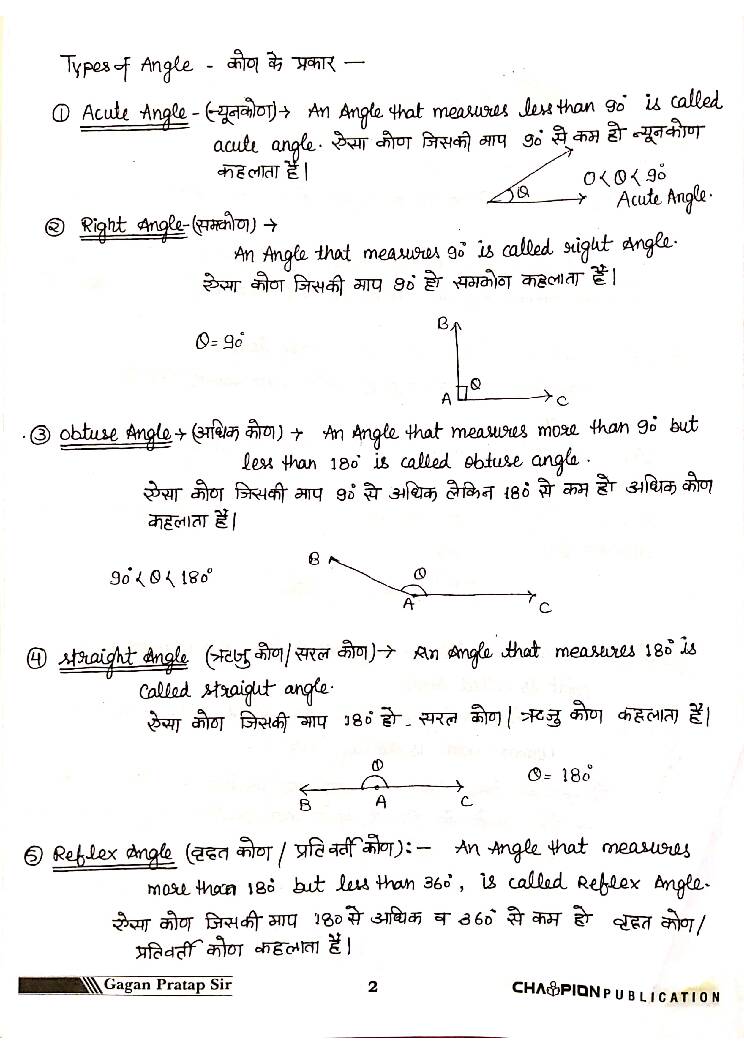 Types of Angle - कोण के प्रकार —
① Acute Angle - (न्यूनकोण) → An Angle that measures less than 90° is called
acute angle. ऐसा कोण जिसकी माप 90° से कम हो न्यूनकोण
कहलाता है।
θ
0 < θ < 90°
Acute Angle.
② Right Angle - (समकोण) →
An Angle that measures 90° is called right Angle.
ऐसा कोण जिसकी माप 90° हो समकोण कहलाता है।
θ = 90°
B
A
θ
C
③ Obtuse Angle → (अधिक कोण) → An Angle that measures more than 90° but
less than 180° is called obtuse angle.
ऐसा कोण जिसकी माप 90° से अधिक लेकिन 180° से कम हो अधिक कोण
कहलाता है।
90° < θ < 180°
B
θ
A
C
④ straight Angle (ऋजु कोण / सरल कोण) → An Angle that measures 180° is
called straight angle.
ऐसा कोण जिसकी माप 180° हो - सरल कोण / ऋजु कोण कहलाता है।
θ
B
A
C
θ = 180°
⑤ Reflex Angle (वृहत कोण / प्रतिवर्ती कोण) :- An Angle that measures
more than 180° but less than 360°, is called Reflex Angle.
ऐसा कोण जिसकी माप 180° से अधिक व 360° से कम हो वृहत कोण /
प्रतिवर्ती कोण कहलाता है।
Gagan Pratap Sir
2
CHAMPION PUBLICATION